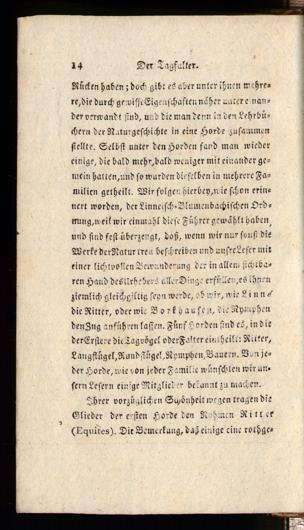 14 Der Tagfalter.
Rücken haben; doch gibt es aber unter ihnen mehre-
re, die durch gewisse Eigenschaften näher unter einan-
der verwandt sind, und die man denn in den Lehrbü-
chern der Naturgeschichte in eine Horde zusammen
stellte. Selbst unter den Horden fand man wieder
einige, die bald mehr, bald weniger mit einander ge-
mein hatten, und so wurden dieselben in mehrere Fa-
milien getheilt. Wir folgen hierbey, wie schon erin-
nert worden, der Linneisch-Blumenbachischen Ord-
nung, weil wir einmahl diese Führer gewählt haben,
und sind fest überzeugt, daß, wenn wir nur sonst die
Werke der Natur treu beschreiben und unsre Leser mit
einer lichtvollen Bewunderung der in allem sichtba-
ren Hand des Urhebers aller Dinge erfüllen, es ihnen
ziemlich gleichgiltig seyn werde, ob wir, wie Linné
die Ritter, oder wie Borkhausen, die Nymphen
den Zug anführen lassen. Fünf Horden sind es, in die
der Erstere die Tagvögel oder Falter eintheilt: Ritter,
Langflügel, Rundflügel, Nymphen, Bauern. Von je-
der Horde, wie von jeder Familie wünschten wir un-
sern Lesern einige Mitglieder bekannt zu machen.
Ihrer vorzüglichen Schönheit wegen tragen die
Glieder der ersten Horde den Nahmen Ritter
(Equites). Die Bemerkung, daß einige eine rothge-